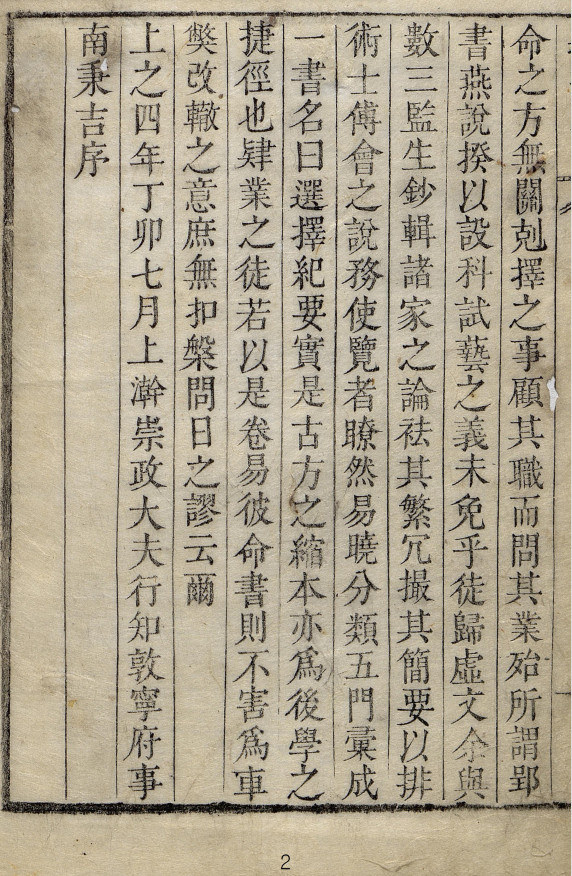 命之方無關剋擇之事顧其職而問其業殆所謂郢
書燕說揆以設科試藝之義未免乎徒歸虛文余與
數三監生鈔輯諸家之論祛其繁冗撮其簡要以排
術士傅會之說務使覽者瞭然易曉分類五門彙成
一書名曰選擇紀要實是古方之縮本亦爲後學之
捷徑也肄業之徒若以是卷易彼命書則不害爲車
獘改轍之意庶無扣槃問日之謬云爾
上之四年丁卯七月上澣崇政大夫行知敦寧府事
南秉吉序
2